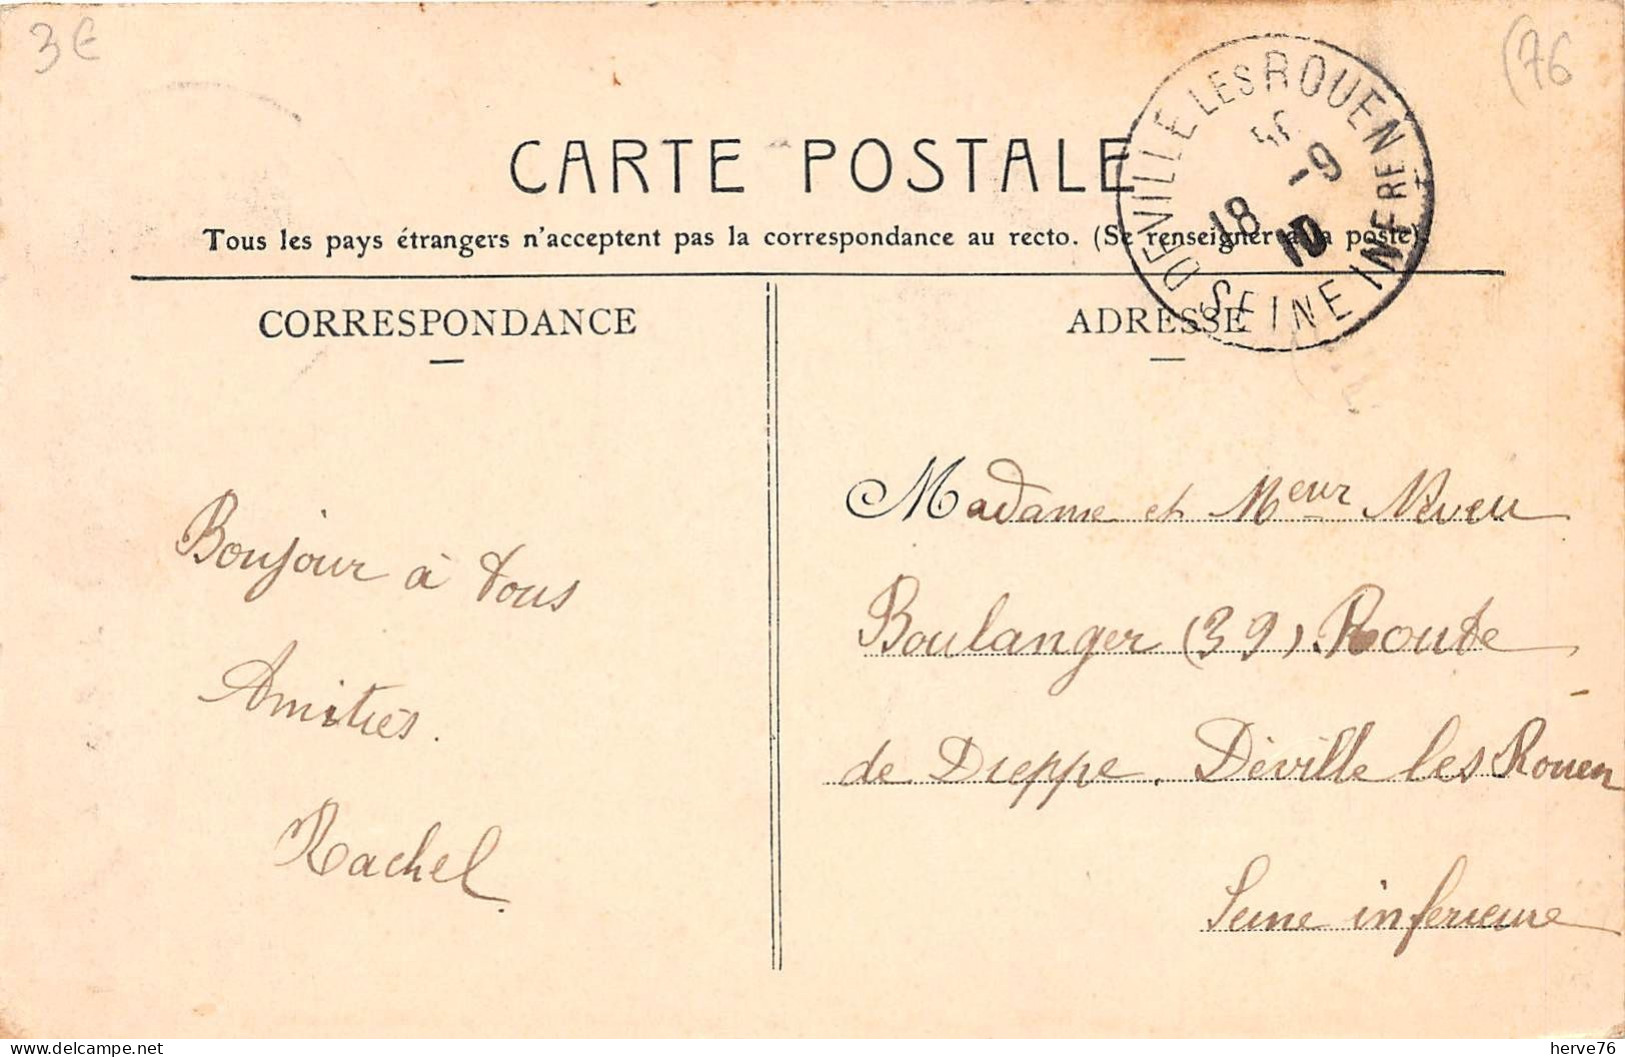 3€
(76
CARTE POSTALE
Tous les pays étrangers n'acceptent pas la correspondance au recto. (Se renseigner à la poste).
DEVILLE LES ROUEN
18 -9
10
SEINE INFRE
CORRESPONDANCE
ADRESSE
Bonjour à tous
Amitiés.
Rachel
Madame et Meur Neveu
Boulanger (39) Route
de Dieppe. Déville les Rouen
Seine inferieure
herve76